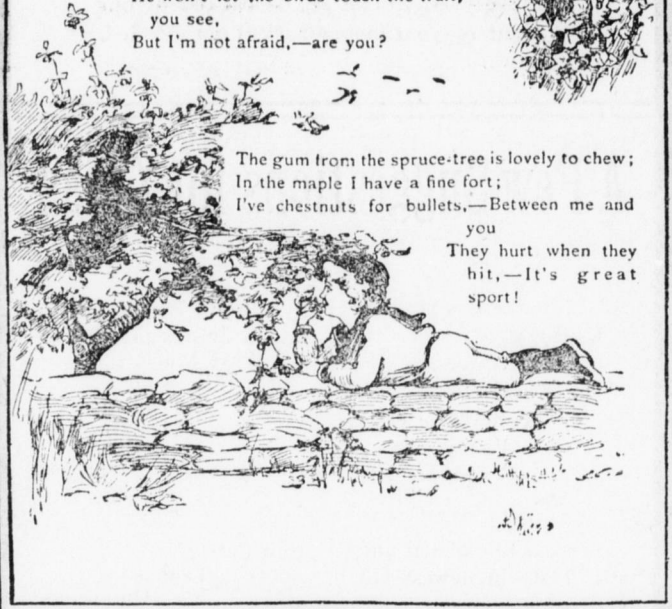 you see,
But I'm not afraid,—are you?
The gum from the spruce-tree is lovely to chew;
In the maple I have a fine fort;
I've chestnuts for bullets,—Between me and
you
They hurt when they
hit,—It's great
sport!